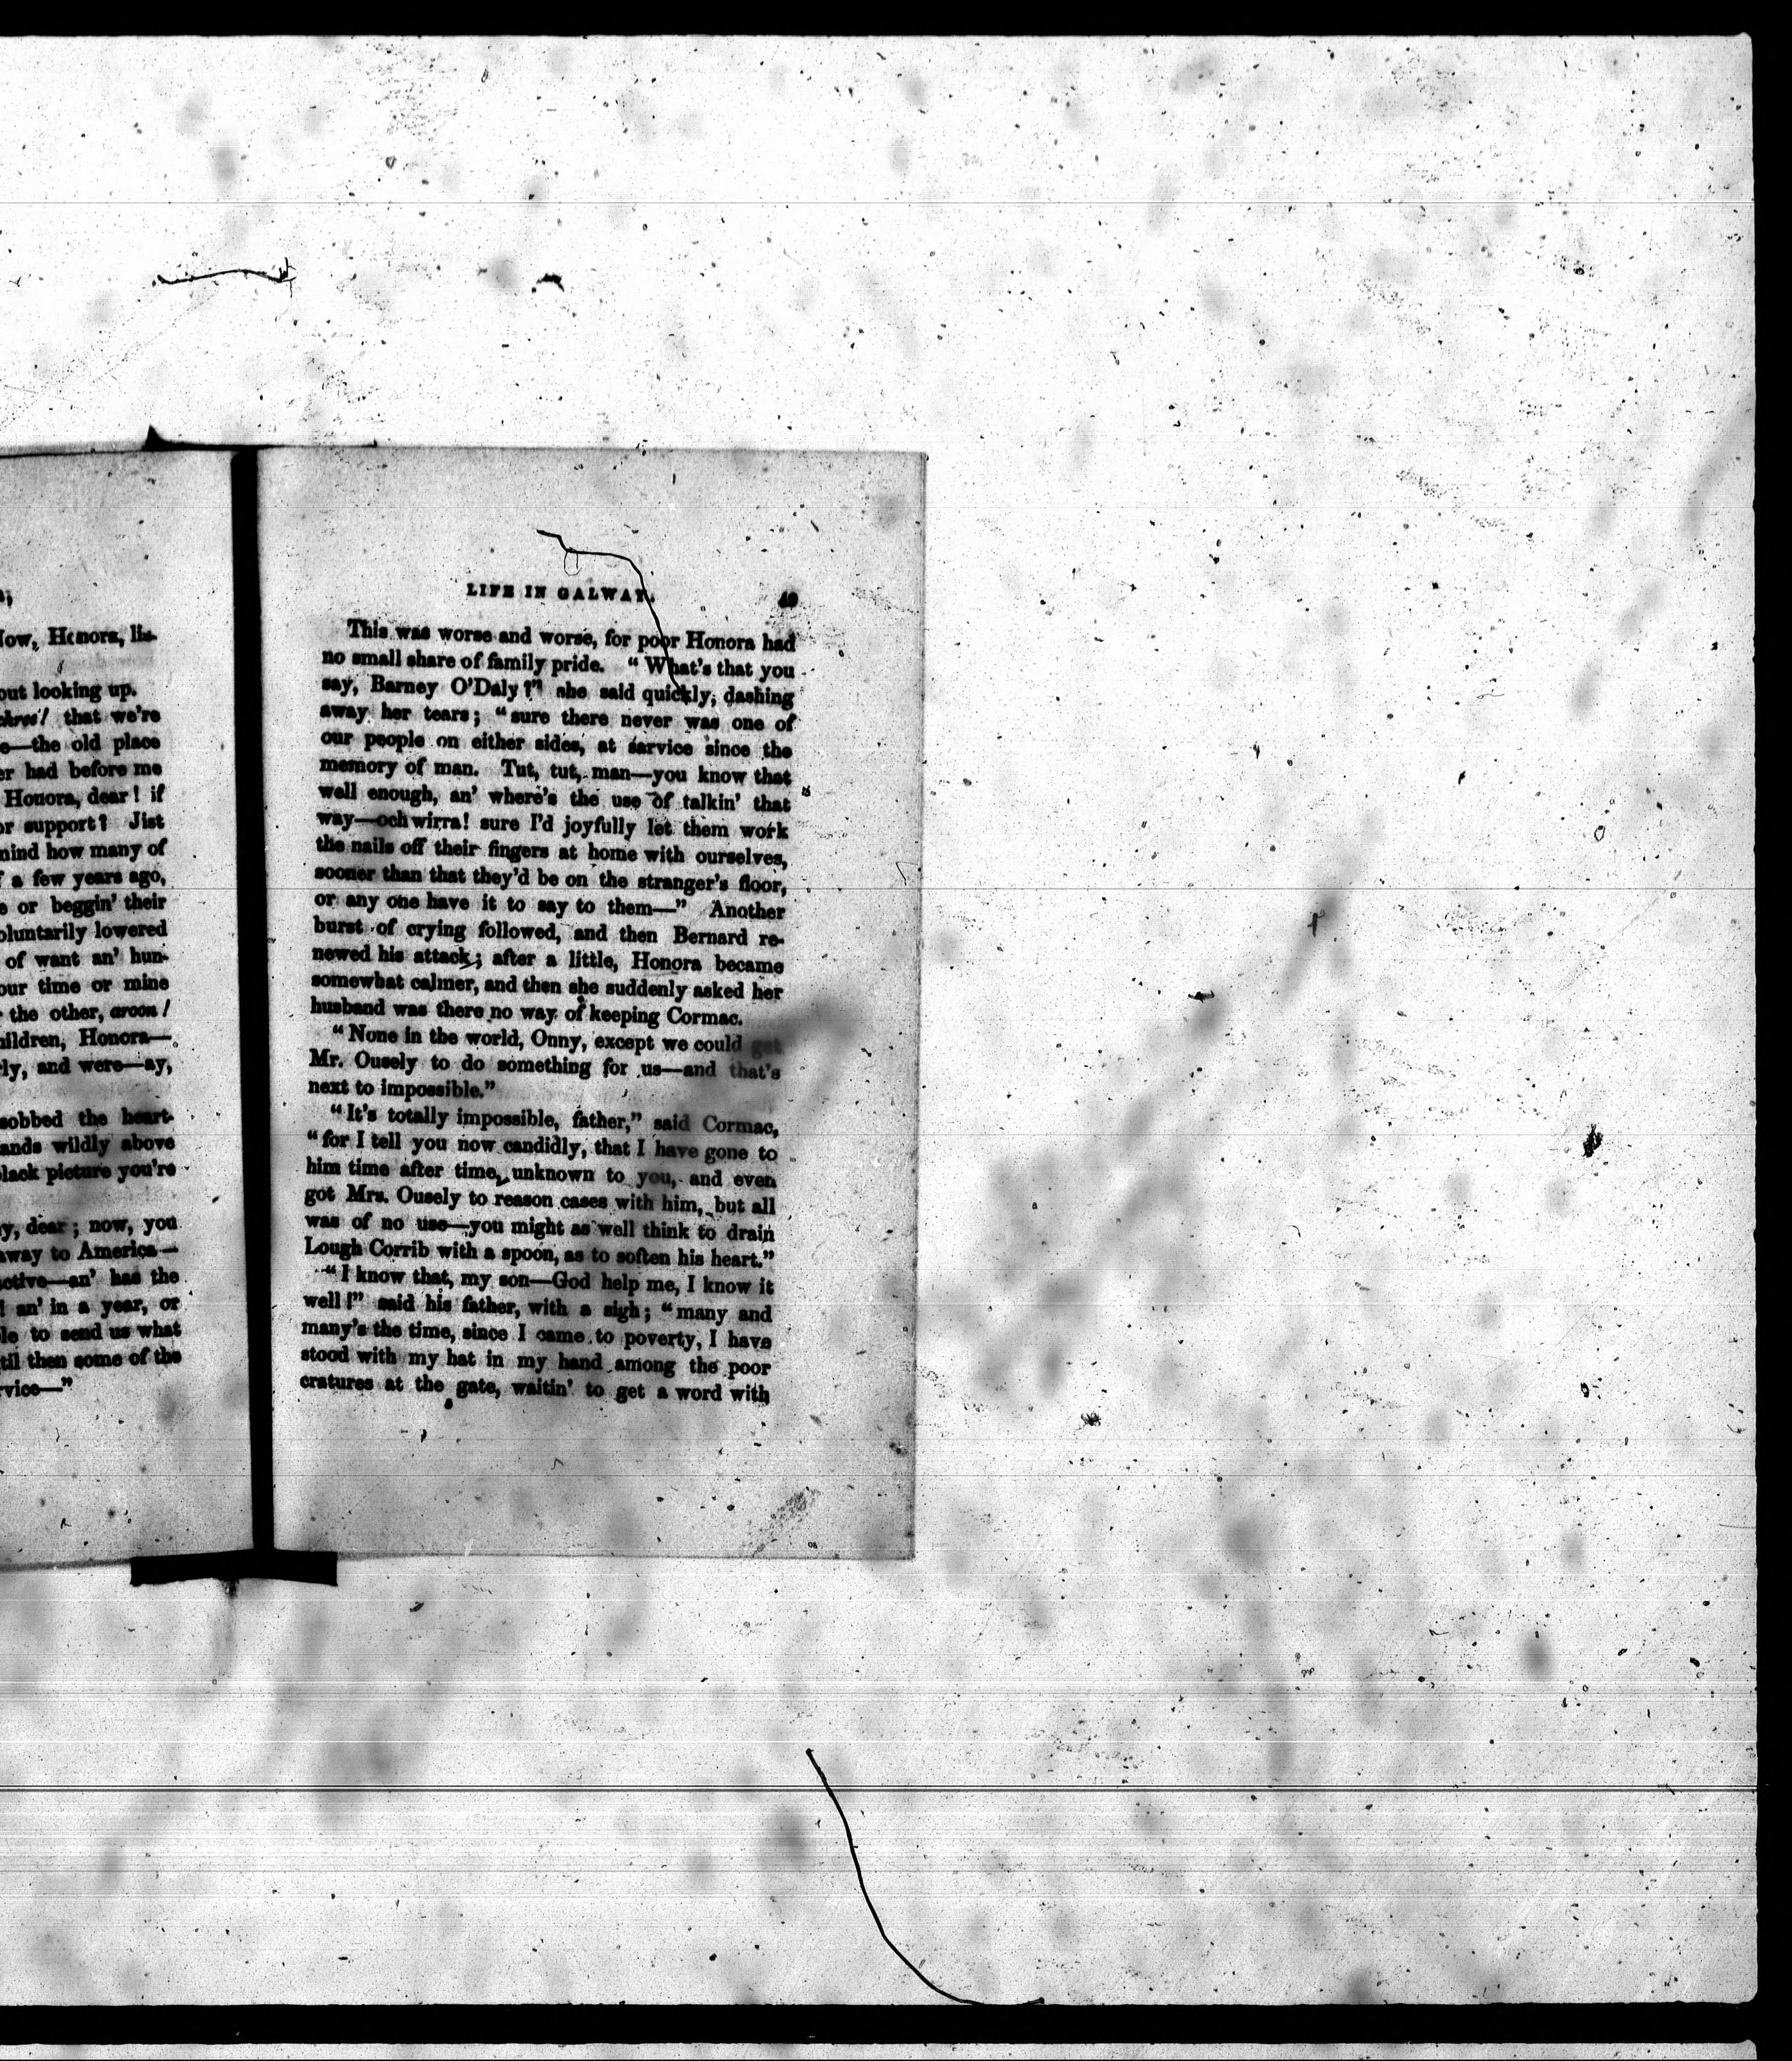 Now, Honora, lis-
out looking up.
chree! that we're
e—the old place
er had before me
Honora, dear! if
or support? Jist
mind how many of
f a few years ago,
e or beggin' their
oluntarily lowered
of want an' hun-
our time or mine
the other, aroon!
hildren, Honora—
rly, and were—ay,
sobbed the heart-
ands wildly above
black picture you're
y, dear; now, you
away to America—
active—an' has the
! an' in a year, or
le to send us what
til then some of the
rvice—"
LIFE IN GALWAY. 49
This was worse and worse, for poor Honora had
no small share of family pride. "What's that you
say, Barney O'Daly?" she said quickly, dashing
away her tears; "sure there never was one of
our people on either sides, at sarvice since the
memory of man. Tut, tut, man—you know that
well enough, an' where's the use of talkin' that
way—och wirra! sure I'd joyfully let them work
the nails off their fingers at home with ourselves,
sooner than that they'd be on the stranger's floor,
or any one have it to say to them—" Another
burst of crying followed, and then Bernard re-
newed his attack; after a little, Honora became
somewhat calmer, and then she suddenly asked her
husband was there no way of keeping Cormac.
"None in the world, Onny, except we could get
Mr. Ousely to do something for us—and that's
next to impossible."
"It's totally impossible, father," said Cormac,
"for I tell you now candidly, that I have gone to
him time after time, unknown to you, and even
got Mrs. Ousely to reason cases with him, but all
was of no use—you might as well think to drain
Lough Corrib with a spoon, as to soften his heart."
"I know that, my son—God help me, I know it
well!" said his father, with a sigh; "many and
many's the time, since I came to poverty, I have
stood with my hat in my hand among the poor
cratures at the gate, waitin' to get a word with